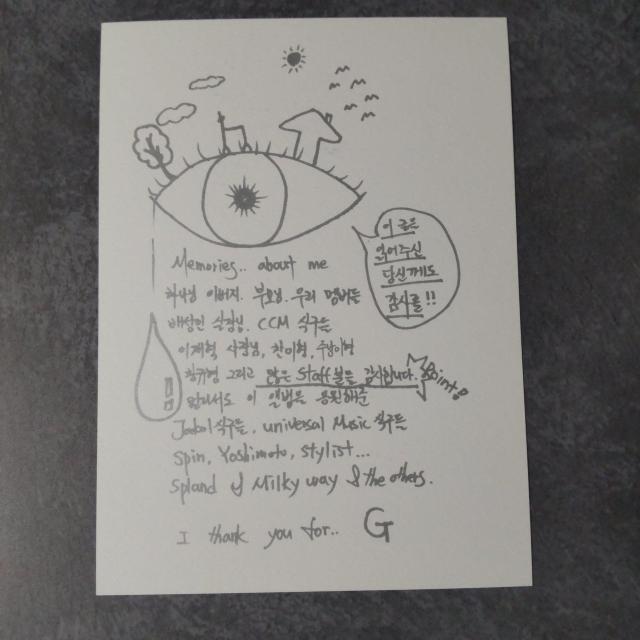 이 글을
읽어주신
당신께도
감사를!!
Memories.. about me
하나님 아버지. 부모님. 우리 멤버들
배성현 실장님. CCM 식구들
이 사장님, 진이형,
그리고 많은 Staff분들 감사합니다. Point!!
일본에서도 이 앨범을 응원해준
식구들, universal Music 식구들
Spin, Yoshimoto, stylist...
of Milky way & the others.
I thank you for.. G